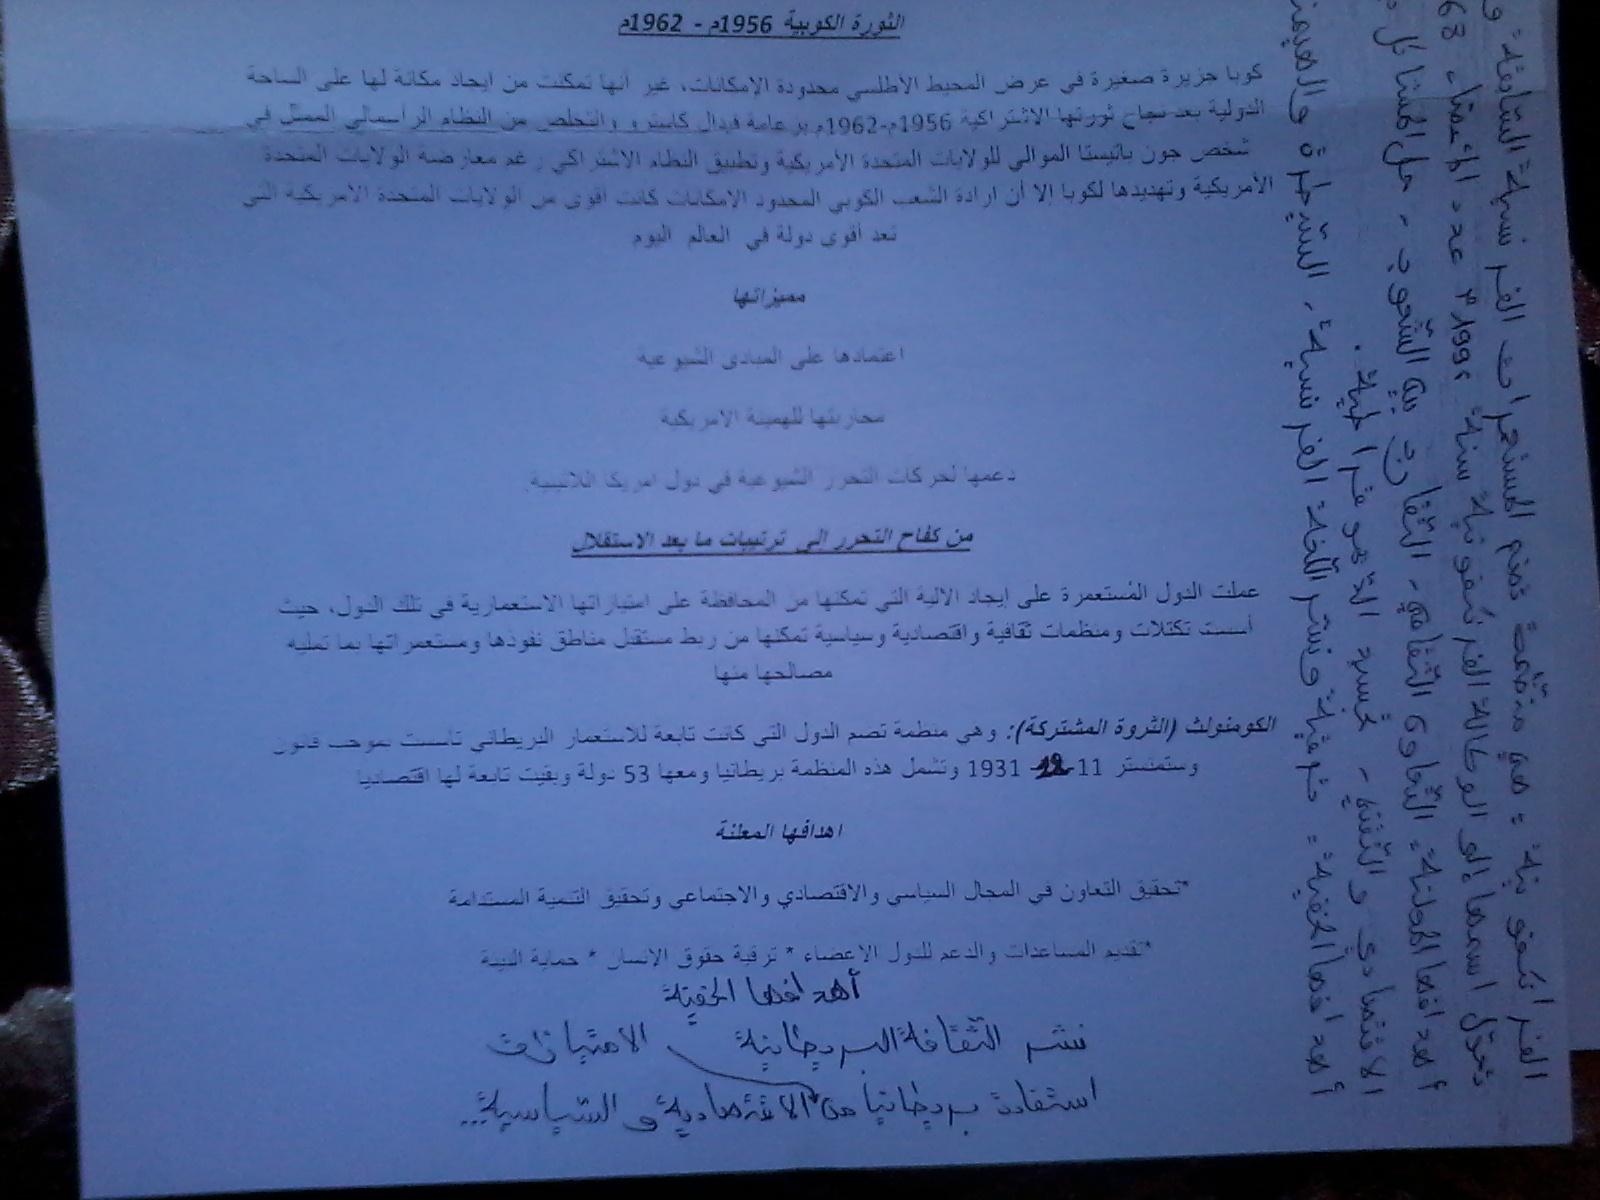 الثورة الكوبية 1956م - 1962م
كوبا جزيرة صغيرة في عرض المحيط الأطلسي محدودة الإمكانات، غير أنها تمكنت من ايجاد مكانة لها على الساحة
الدولية بعد نجاح ثورتها الاشتراكية 1956م-1962م بزعامة فيدال كاسترو والتخلص من النظام الرأسمالي الممثل في
شخص جون باتيستا الموالي للولايات المتحدة الأمريكية وتطبيق النظام الاشتراكي رغم معارضة الولايات المتحدة
الأمريكية وتهديدها لكوبا إلا أن ارادة الشعب الكوبي المحدود الإمكانات كانت أقوى من الولايات المتحدة الامريكية التي
تعد أقوى دولة في العالم اليوم
مميزاتها
اعتمادها على المبادئ الشيوعية
محاربتها للهمينة الامريكية
دعمها لحركات التحرر الشيوعية في دول امريكا اللاتينية.
من كفاح التحرر الى ترتيبات ما بعد الاستقلال
عملت الدول المُستعمرة على إيجاد الالية التي تمكنها من المحافظة على امتيازاتها الاستعمارية في تلك الدول، حيث
أسست تكتلات ومنظمات ثقافية واقتصادية وسياسية تمكنها من ربط مستقبل مناطق نفوذها ومستعمراتها بما تمليه
مصالحها منها
الكومنولث (الثروة المشتركة): وهي منظمة تضم الدول التي كانت تابعة للاستعمار البريطاني تأسست بموجب قانون
وستمنستر 11 12 1931 وتشمل هذه المنظمة بريطانيا ومعها 53 دولة وبقيت تابعة لها اقتصاديا
اهدافها المعلنة
*تحقيق التعاون في المجال السياسي والاقتصادي والاجتماعي وتحقيق التنمية المستدامة
*تقديم المساعدات والدعم للدول الاعضاء * ترقية حقوق الانسان * حماية البيئة
أهدافها الخفية
نشر الثقافة البريطانية
استفادة بريطانيا من الامتيازات الاقتصادية والسياسية...
الفرانكفونية: هي منظمة تضم المستعمرات الفرنسية السابقة و
تحول اسمها إلى الوكالة الفرنكفونية سنة عدد الأعضاء 68
أهدافها المعلنة: التعاون الثقافي - التقارب بين الشعوب - حل المشاكل
الاقتصادي و التقني - تجسيد الديموقراطية.
أهدافها الخفية: ونشر اللغة الفرنسية، السيطرة والهيمنة